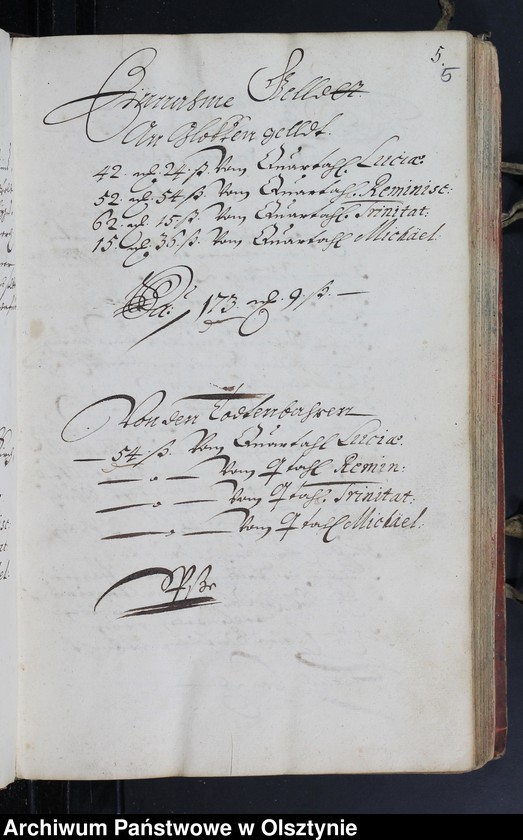 5.
5
Einnahme Gellder
An Glokken gelldt.
42. mk. 24. ß. Vom Quartahl. Luciæ
52. mk. 54. ß. Vom Quartahl. Reminisc:
62. mk. 15. ß. Vom Quartahl. Trinitat:
15. mk. 36. ß. Vom Quartahl Michäel.
173. mk. 9. ß. —
Von den Todtenbahren
— 54. ß. Vom Quartahl Luciæ.
— o — Vom Qtahl Remin:
— o — Vom Qtahl. Trinitat:
— o — Vom Qtahl Michäel.
Archiwum Państwowe w Olsztynie